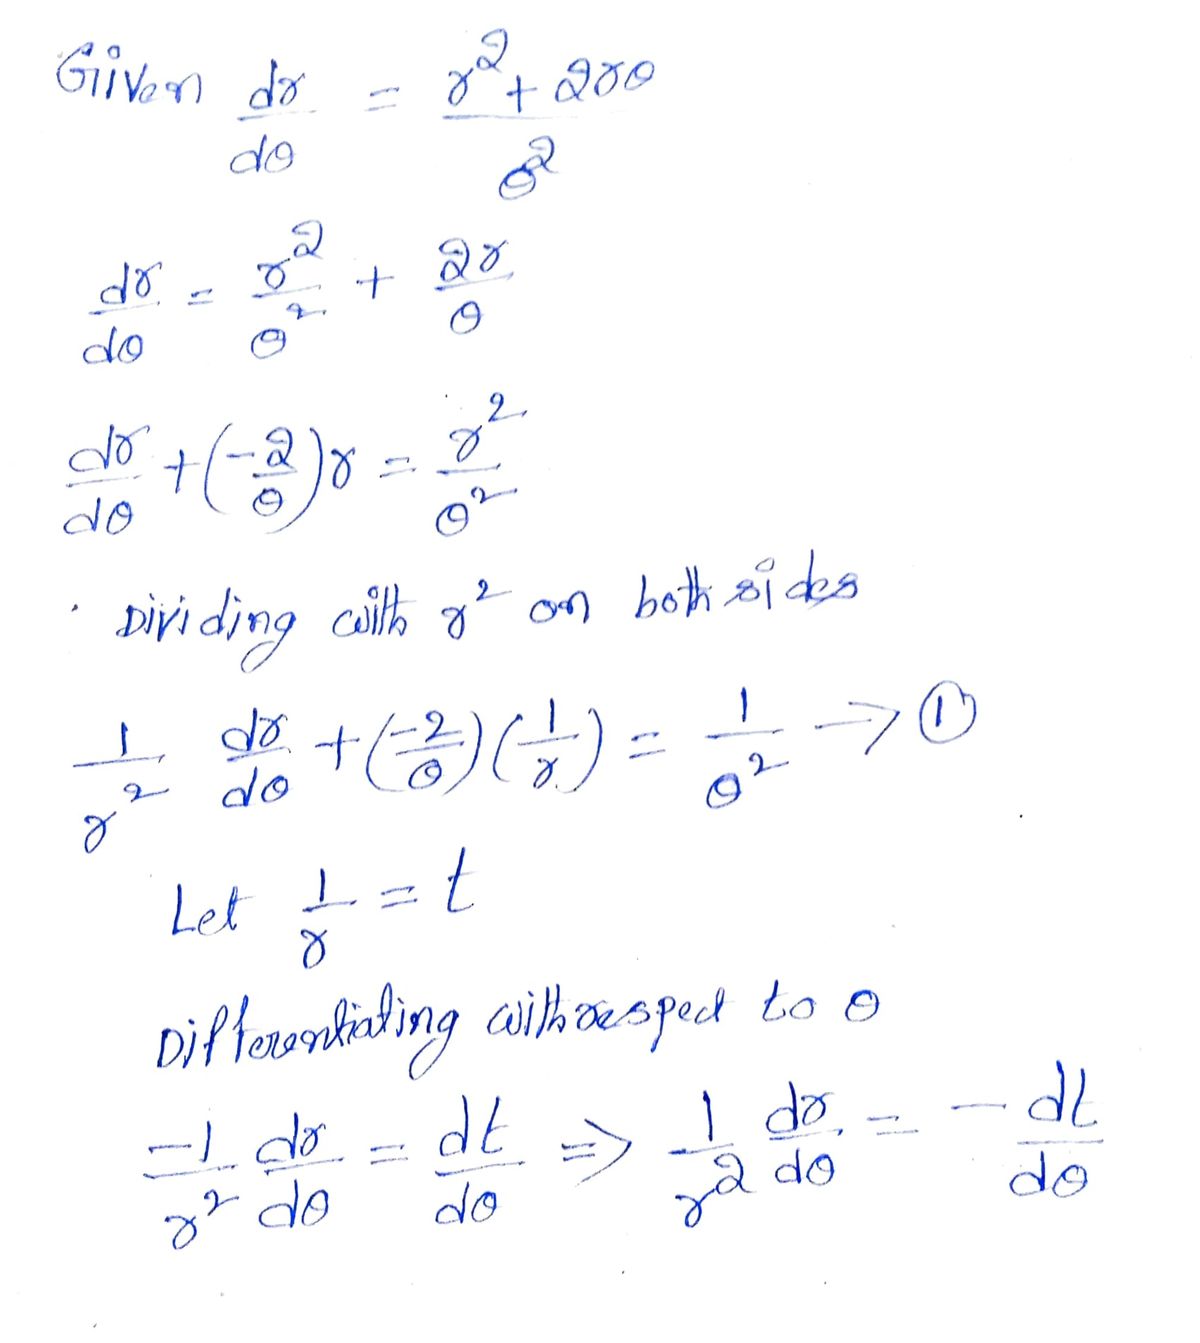 Given dr/dθ = (r² + 2rθ)/θ²
dr/dθ = r²/θ² + 2r/θ
dr/dθ + (-2/θ)r = r²/θ²
Dividing with r² on both sides
1/r² dr/dθ + (-2/θ)(1/r) = 1/θ² → ①
Let 1/r = t
Differentiating with respect to θ
-1/r² dr/dθ = dt/dθ ⇒ 1/r² dr/dθ = - dt/dθ